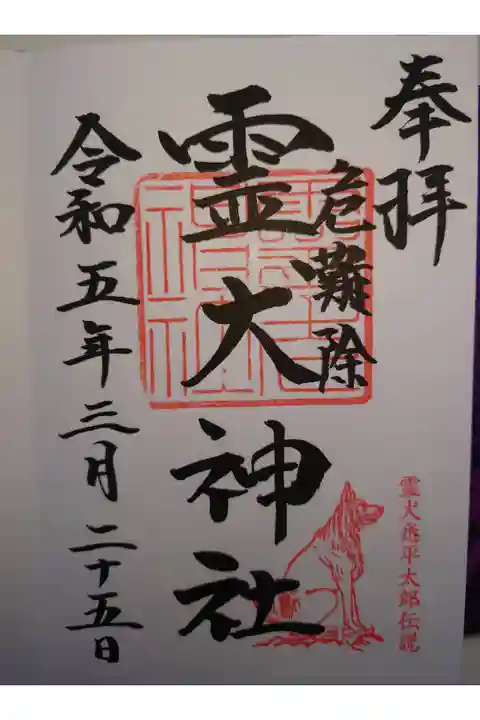 奉拝
危難除
霊犬神社
令和五年三月二十五日
霊犬悉平太郎伝説